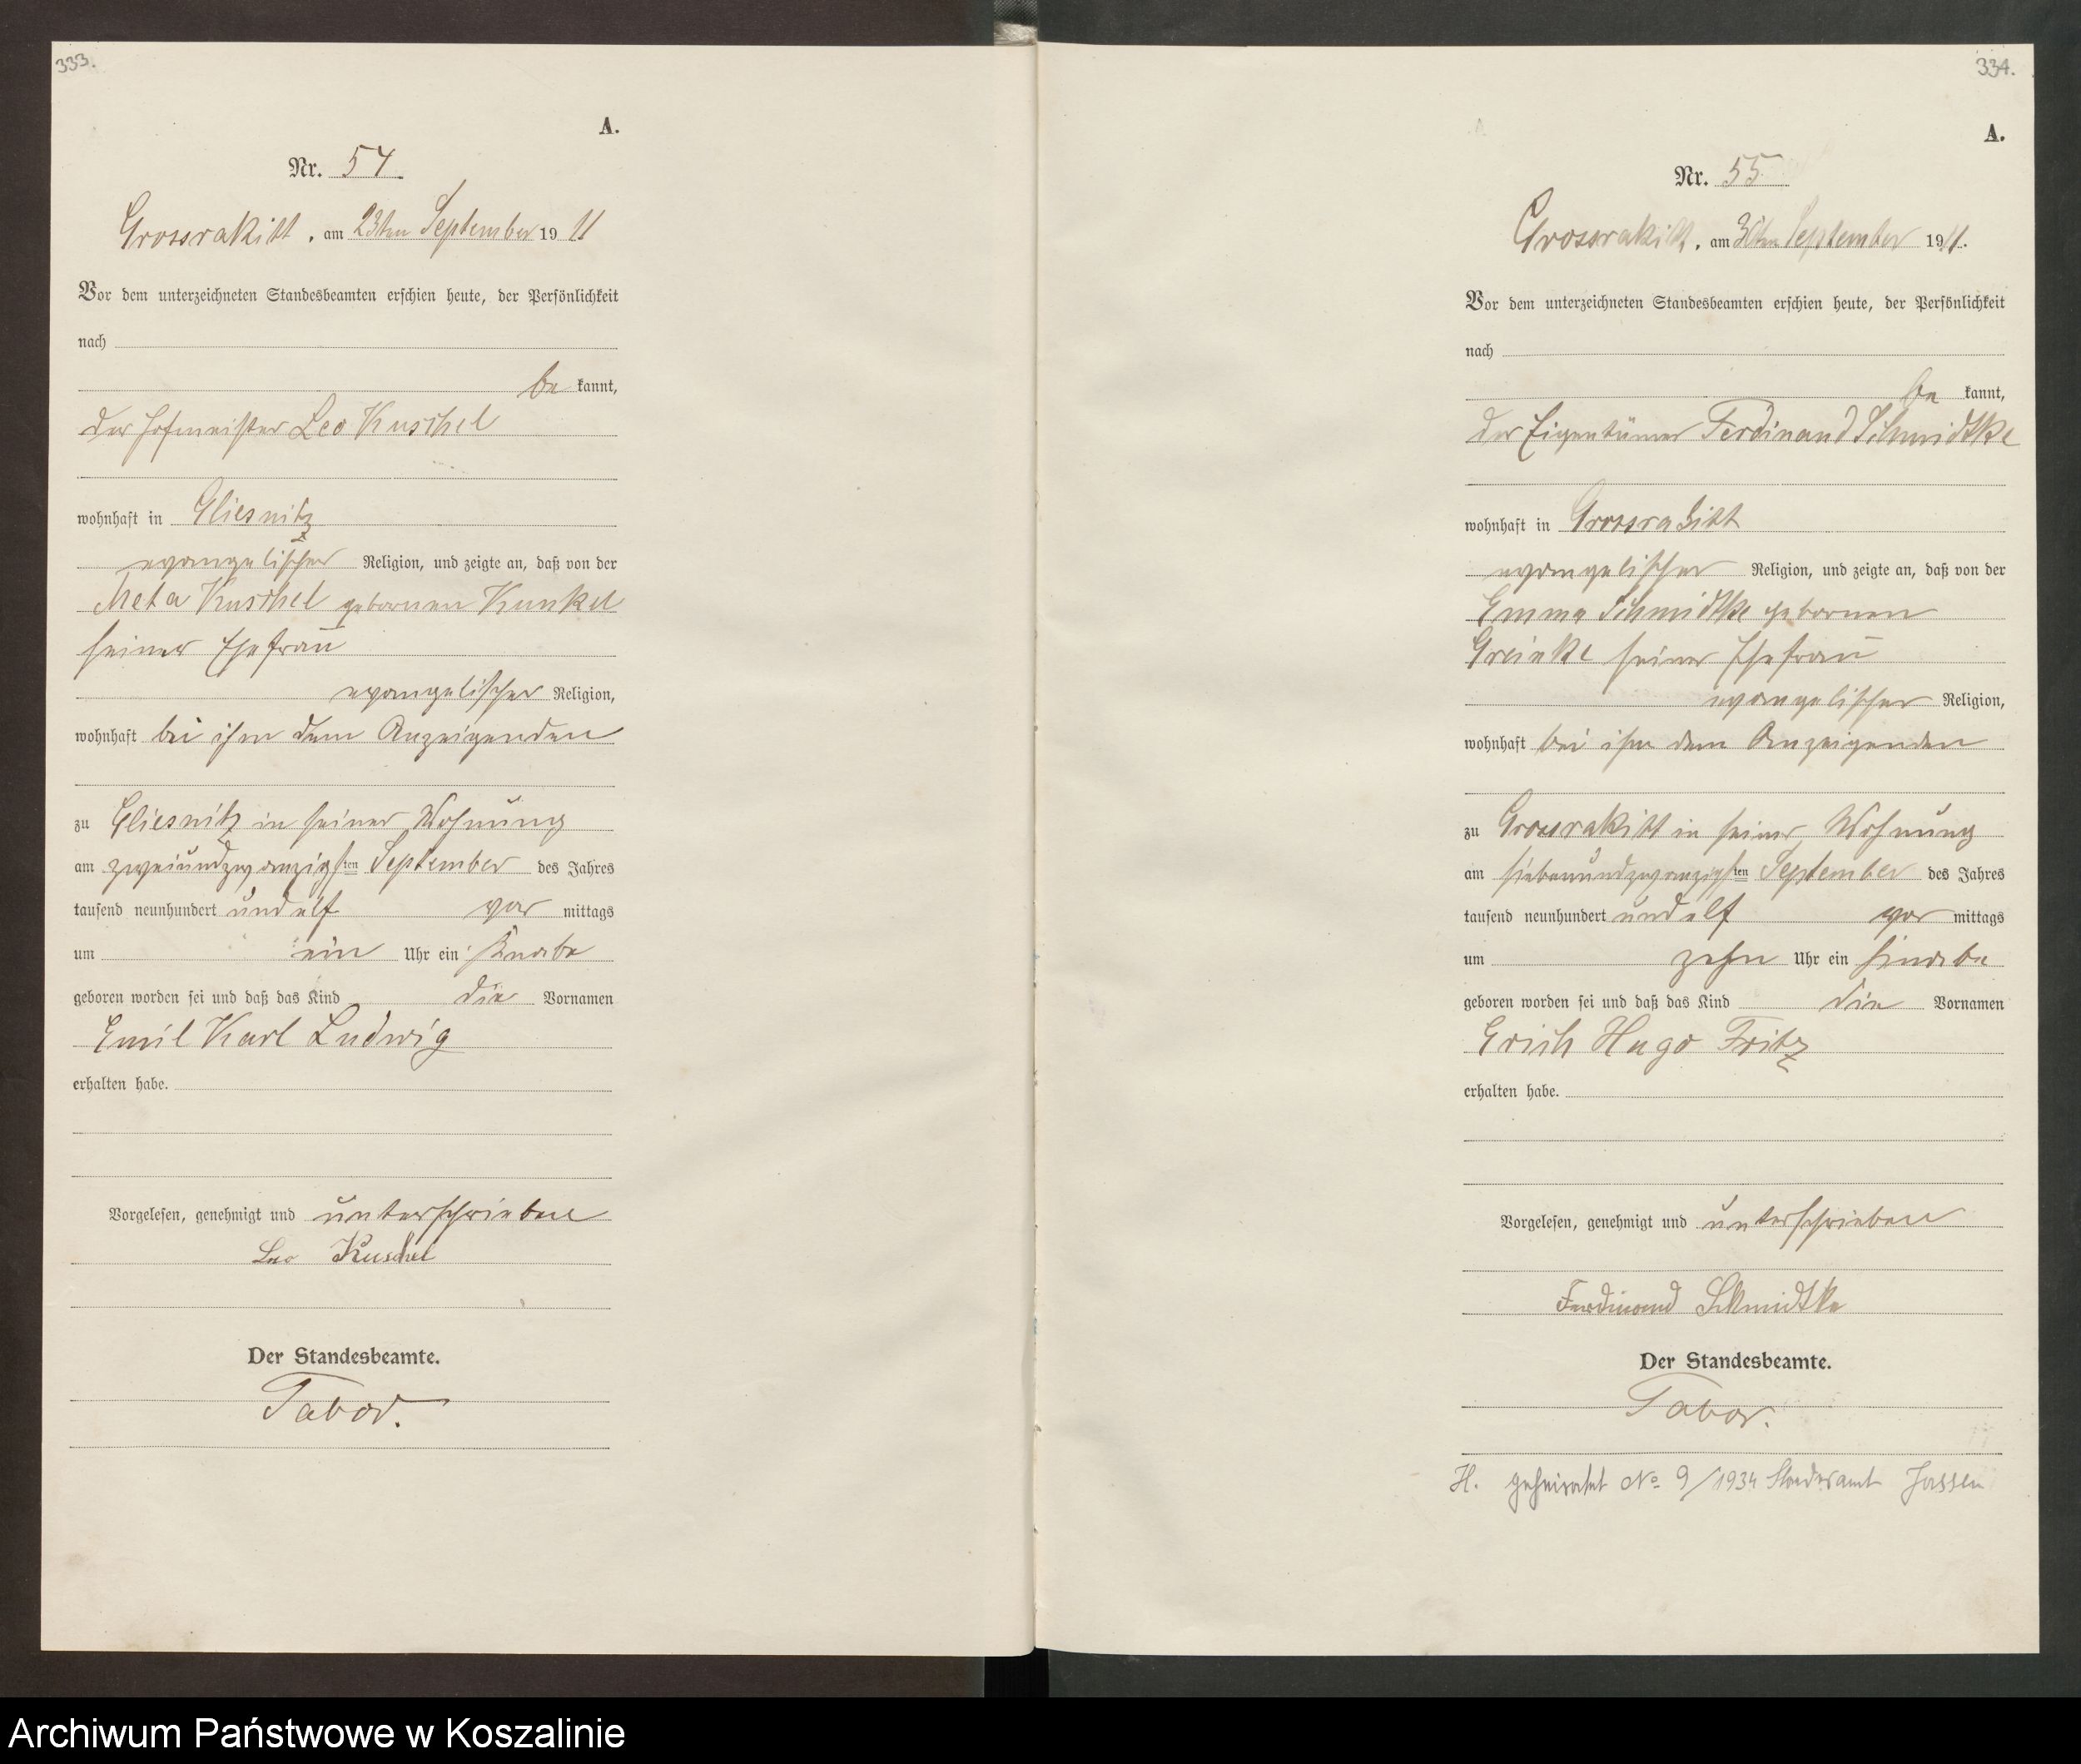 333.
A.
Nr. 54.
Grossrakitt, am 23ten September 1911
Vor dem unterzeichneten Standesbeamten erschien heute, der Persönlichkeit
nach
be kannt,
der Hofmeister Leo Kuschel
wohnhaft in Gliesnitz
evangelischer Religion, und zeigte an, daß von der
Meta Kuschel gebornen Kunkel
seiner Ehefrau
evangelischer Religion,
wohnhaft bei ihm dem Anzeigenden
zu Gliesnitz in seiner Wohnung
am zweiundzwanzigsten September des Jahres
tausend neunhundert und elf vor mittags
um ein Uhr ein Knabe
geboren worden sei und daß das Kind die Vornamen
Emil Karl Ludwig
erhalten habe.
Vorgelesen, genehmigt und unterschrieben
Leo Kuschel
Der Standesbeamte.
Tabor.
334.
A.
Nr. 55
Grossrakitt, am 30ten September 1911.
Vor dem unterzeichneten Standesbeamten erschien heute, der Persönlichkeit
nach
be kannt,
der Eigentümer Ferdinand Schmidtke
wohnhaft in Grossrakitt
evangelischer Religion, und zeigte an, daß von der
Emma Schmidtke gebornen
Greinke seiner Ehefrau
evangelischer Religion,
wohnhaft bei ihm dem Anzeigenden
zu Grossrakitt in seiner Wohnung
am siebenundzwanzigsten September des Jahres
tausend neunhundert und elf vor mittags
um zehn Uhr ein Knabe
geboren worden sei und daß das Kind die Vornamen
Erich Hugo Fritz
erhalten habe.
Vorgelesen, genehmigt und unterschrieben
Ferdinand Schmidtke
Der Standesbeamte.
Tabor.
H. geheiratet No 9/1934 Standesamt Jassen
Archiwum Państwowe w Koszalinie